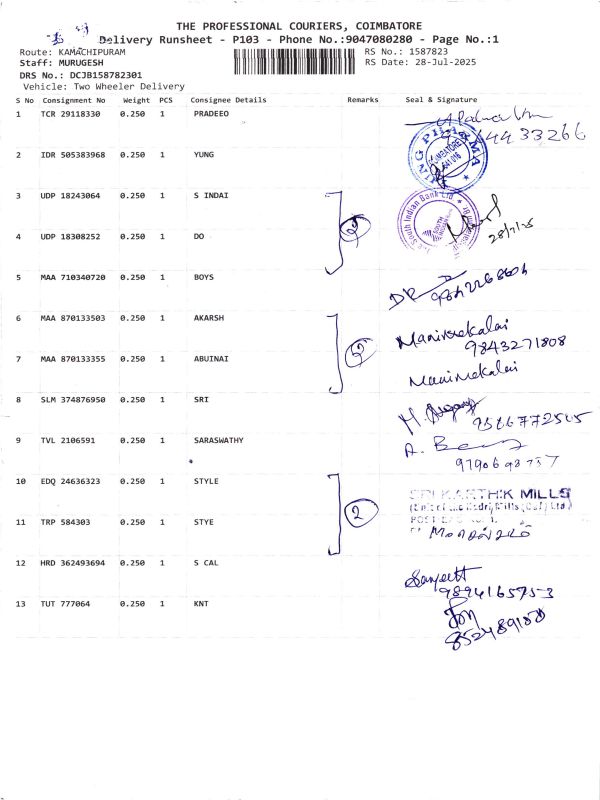 THE PROFESSIONAL COURIERS, COIMBATORE
Delivery Runsheet - P103 - Phone No.:9047080280 - Page No.:1
Route: KAMACHIPURAM
RS No.: 1587823
Staff: MURUGESH
RS Date: 28-Jul-2025
DRS No.: DCJB158782301
Vehicle: Two Wheeler Delivery
S No Consignment No Weight PCS Consignee Details Remarks Seal & Signature
1 TCR 29118330 0.250 1 PRADEEO
2 IDR 505383968 0.250 1 YUNG
3 UDP 18243064 0.250 1 S INDAI
South Indian Bank Ltd
4 UDP 18308252 0.250 1 DO
28/7/25
5 MAA 710340720 0.250 1 BOYS
6 MAA 870133503 0.250 1 AKARSH
Manimekalai
9843271808
7 MAA 870133355 0.250 1 ABUINAI
Manimekalai
8 SLM 374876950 0.250 1 SRI
9 TVL 2106591 0.250 1 SARASWATHY
10 EDQ 24636323 0.250 1 STYLE
SRI KARTHIK MILLS
2
11 TRP 584303 0.250 1 STYE
12 HRD 362493694 0.250 1 S CAL
Sanjeett
9894165753
13 TUT 777064 0.250 1 KNT